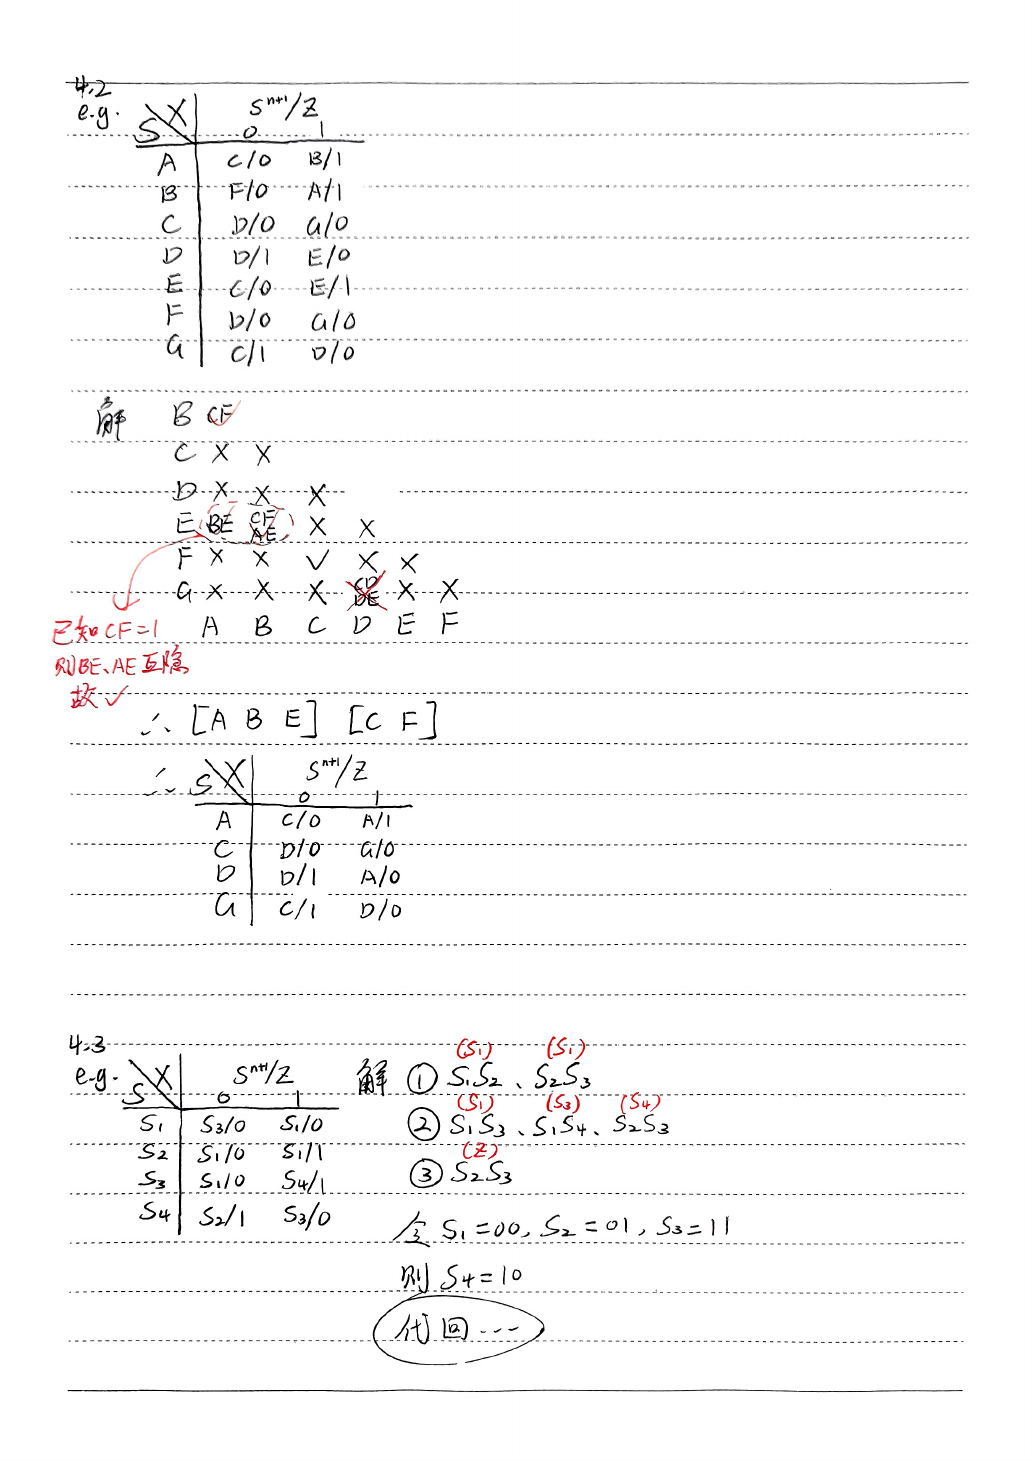 4.2
e.g.
S X S^{n+1}/Z
0 1
A C/0 B/1
B F/0 A/1
C D/0 G/0
D D/1 E/0
E C/0 E/1
F D/0 G/0
G C/1 D/0
解 B CF✓
C × ×
D × × ×
E BE CF AE × ×
F × × ✓ × ×
G × × × CD DE × ×
A B C D E F
已知CF=1
则BE、AE互隐
故✓
∴ [A B E] [C F]
∴ S X S^{n+1}/Z
0 1
A C/0 A/1
C D/0 G/0
D D/1 A/0
G C/1 D/0
4.3
e.g. S X S^{n+1}/Z
0 1
S1 S3/0 S1/0
S2 S1/0 S1/1
S3 S1/0 S4/1
S4 S2/1 S3/0
解 (S1) (S1)
① S1S2、S2S3
(S1) (S3) (S4)
② S1S3、S1S4、S2S3
(Z)
③ S2S3
令 S1=00, S2=01, S3=11
则 S4=10
代回...